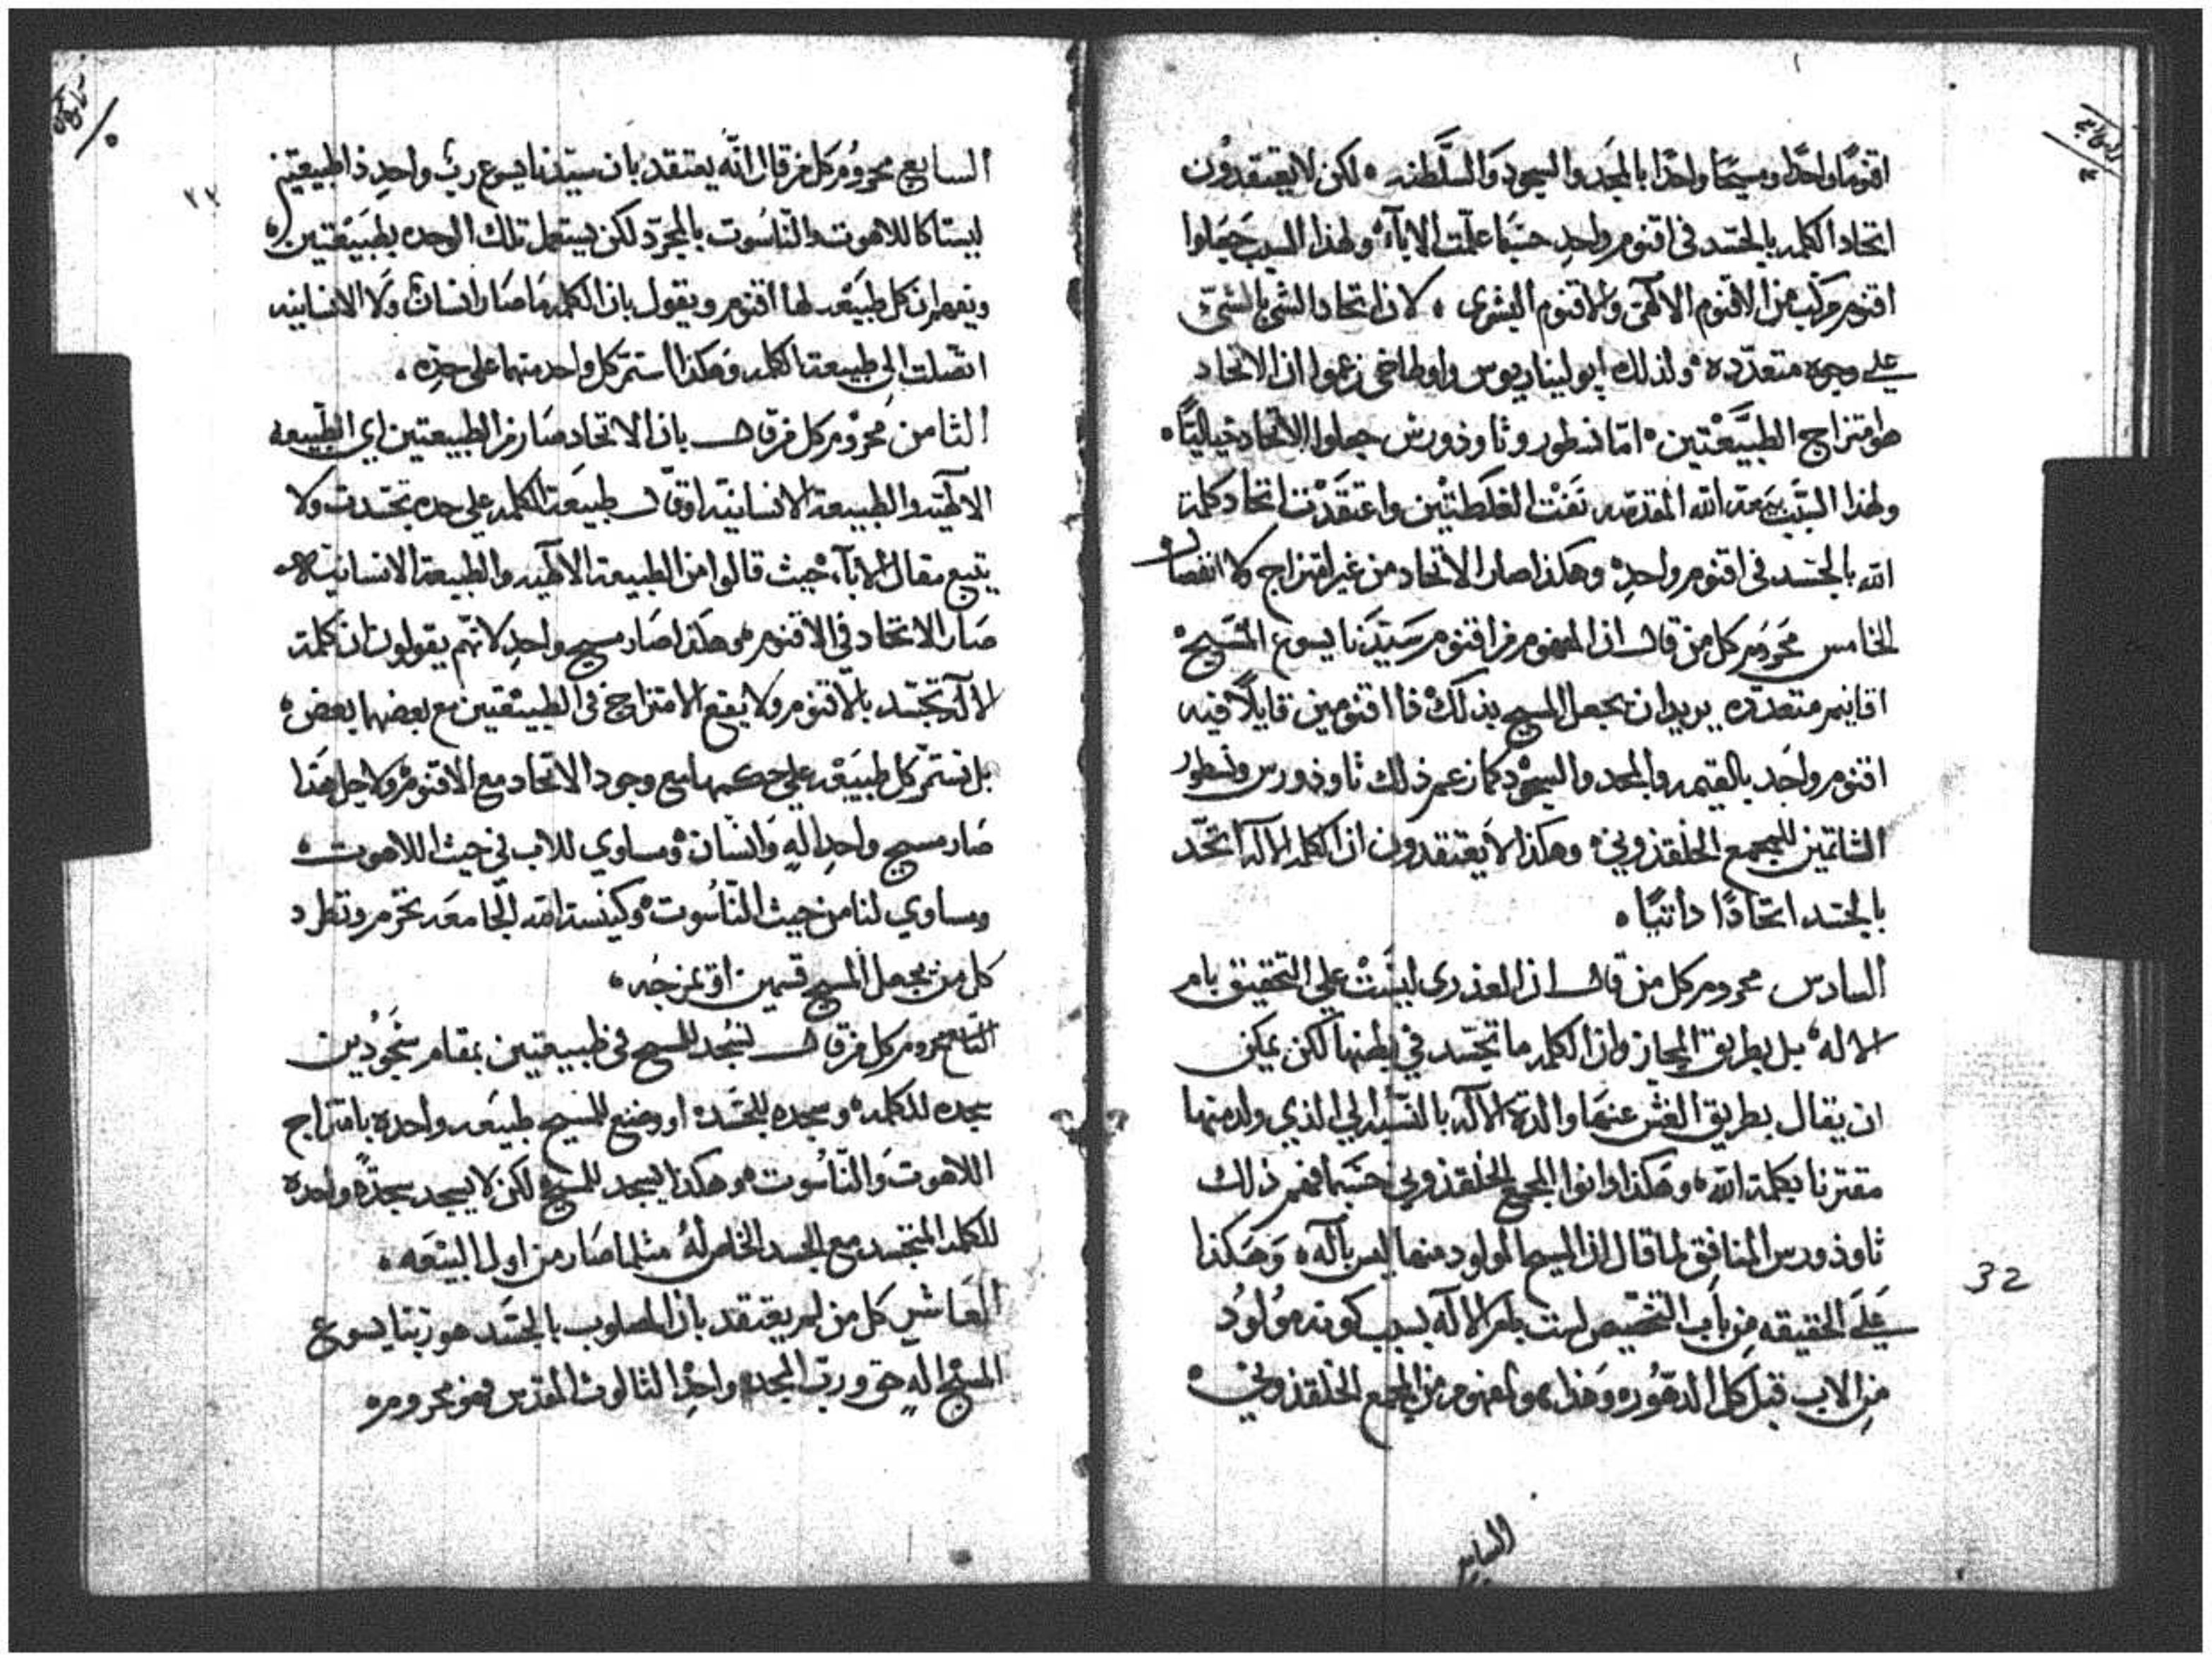 اقنومًا واحدًا ومسيحًا واحدًا بالمجد والسجود والسلطنه ۰ لكن لا يعتقدون
اتحاد الكلمه بالجسد في اقنوم واحدٍ حسبما علمت الاباء ۰ ولهذا السبب جعلوا
اقنوم مركب من الاقنوم الالهي والاقنوم البشري ۰ لان اتحاد الشي بالشي
علي وجوه متعدده ۰ ولذلك ابوليناريوس واوطاخي زعموا ان الاتحاد
هو امتزاج الطبيعتين ۰ اما نسطور وثاوذورس جعلوا الاتحاد خياليًا ۰
ولهذا السبب بيعة الله المقدسه نفت الغلطتين واعتقدت اتحاد كلمة
الله بالجسد في اقنوم واحدٍ ۰ وهكذا صار الاتحاد من غير امتزاج ولا انفصال ۰
الخامس محروم كل من قال ان المفهوم من اقنوم سيدنا يسوع المسيح ۰
اقانيم متعدده يريد ان يجعل المسيح بذلك ذا اقنومين قايلًا فيه
اقنوم واحد بالقيمه والمجد والسجود كما زعم ذلك ثاوذورس ونسطور
الشاتمين للمجمع الخلقذوني ۰ وهكذا لا يعتقدون ان الكلمه الاله اتحد
بالجسد اتحادًا ذاتيًا ۰
السادس محروم كل من قال ان العذري ليست علي التحقيق بام
الاله ۰ بل بطريق المجاز وان الكلمه ما تجسد في بطنها لكن يمكن
ان يقال بطريق الغش عنها والدة الاله بالنسبه الي الذي ولد منها
مقترنا بكلمة الله ۰ وهكذا المجمع الخلقذوني حسبما فهم ذلك
ثاوذورس المنافق لما قال ان المسيح المولود منها ليس باله ۰ وهكذا
علي الحقيقه من باب التخصيص ليست بام الاله بسبب كونه مولود
من الاب قبل كل الدهور ۰ وهذا هو المفهوم من المجمع الخلقذوني ۰
السابع
32
السابع محروم كل من قال انه يعتقد بان سيدنا يسوع رب واحدٍ ذا طبيعتين
ليستا كاللاهوت والناسوت بالمجرد لكن يستعمل تلك الوحده بطبيعتين ۰
ويفهم ان كل طبيعه لها اقنوم ويقول بان الكلمه ما صار انسان ولا الانسانيه
اتصلت الي طبيعة الكلمه وهكذا استمر كل واحد منهما علي حده ۰
الثامن محروم كل من قال بان الاتحاد صار من الطبيعتين اي الطبيعه
الالهيه والطبيعة الانسانيه او قال طبيعة الكلمه علي حده تجسدت ولا
يتبع مقال الاباء حيث قالوا من الطبيعة الالهيه والطبيعة الانسانيه ۰
صار الاتحاد في الاقنوم ۰ وهكذا صار مسيح واحدٍ لانهم يقولون ان كلمة
الاله تجسد بالاقنوم ولا يقع الامتزاج في الطبيعتين مع بعضهما بعض ۰
بل تستمر كل طبيعه علي حكمها مع وجود الاتحاد مع الاقنوم ۰ ولاجل هذا
صار مسيح واحدٍ الهٍ وانسان ۰ ومساوي للاب في حيث اللاهوت ۰
ومساوي لنا من حيث الناسوت ۰ وكنيسة الله الجامعه تحرم وتطرد
كل من يجعل المسيح قسمين او يمزجه ۰
التاسع محروم كل من قال نسجد للمسيح في طبيعتين بمقام سجودين
سجده للكلمه ۰ وسجده للجسد ۰ او وضع للمسيح طبيعه واحده بامتزاج
اللاهوت والناسوت ۰ وهكذا يسجد للمسيح لكن لا يسجد سجدةً واحده
للكلمه المتجسد مع الجسد الخاص لهُ مثلما صار من اول البيعه ۰
العاشر كل من لم يعتقد بان المصلوب بالجسد هو ربنا يسوع
المسيح الهٍ حق ورب المجد ۰ واحد الثالوث المقدس فهو محروم ۰